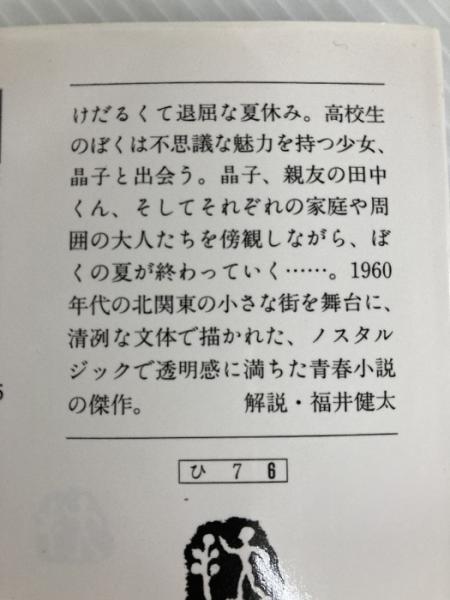 けだるくて退屈な夏休み。高校生
のぼくは不思議な魅力を持つ少女、
晶子と出会う。晶子、親友の田中
くん、そしてそれぞれの家庭や周
囲の大人たちを傍観しながら、ぼ
くの夏が終わっていく……。1960
年代の北関東の小さな街を舞台に、
清冽な文体で描かれた、ノスタル
ジックで透明感に満ちた青春小説
の傑作。 解説・福井健太
ひ 7 6
5